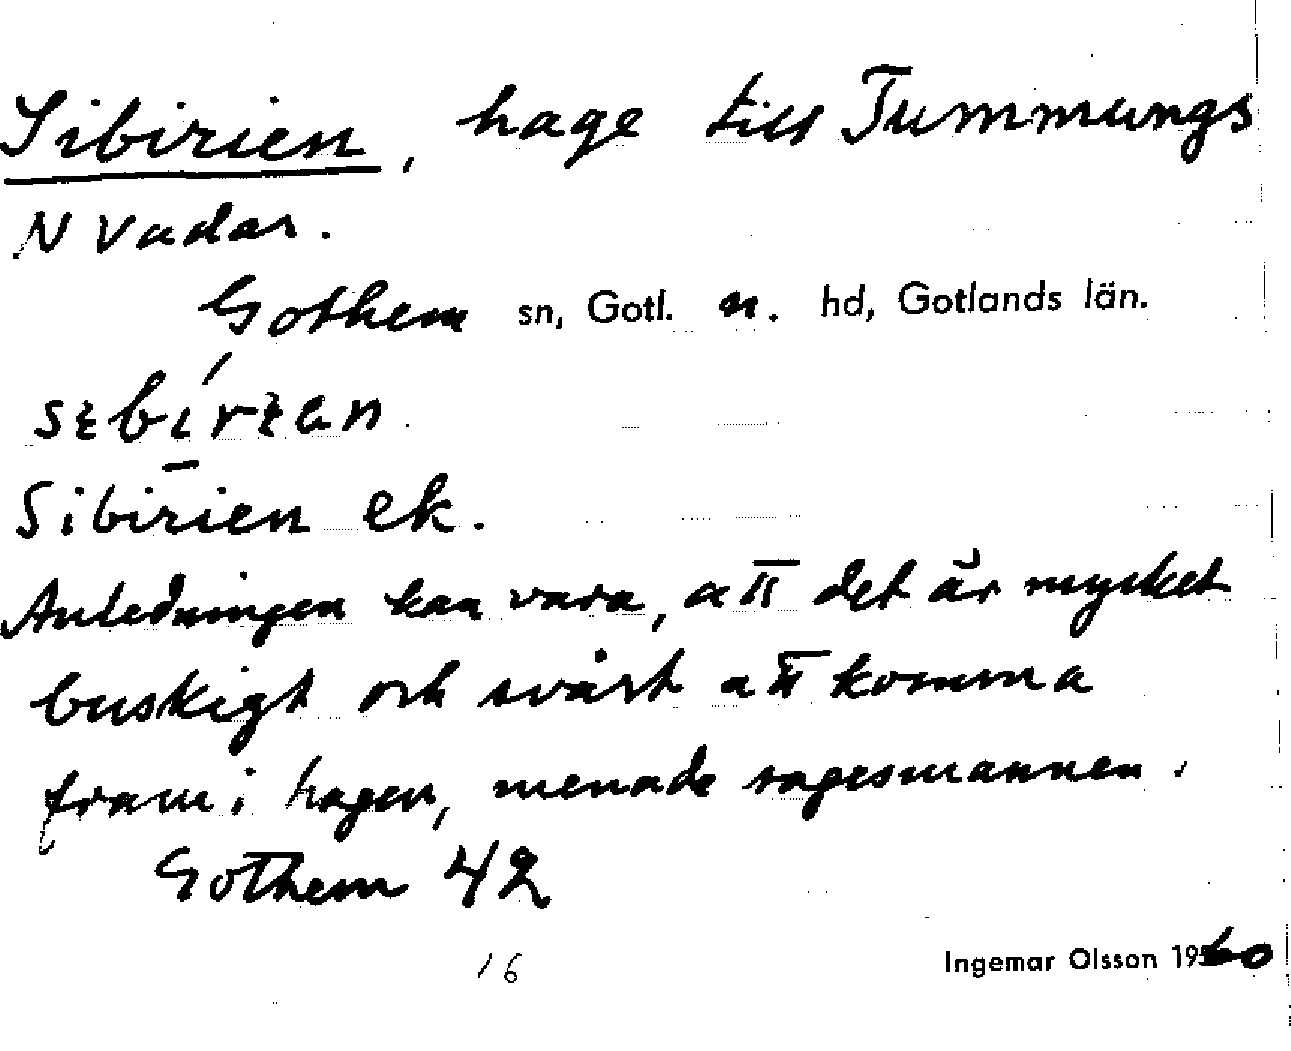 Sibirien, hage till Tummungs
N Vadar.
Gothem sn, Gotl. n. hd, Gotlands län.
Sibirien ek.
Anledningen kan vara, att det är mycket
buskigt och svårt att komma
fram i hagen, menade sagesmannen.
Gothem 42
16
Ingemar Olsson 1960